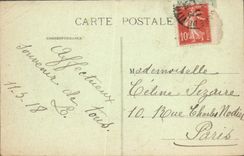 CARTE POSTALE
CORRESPONDANCE
Affectueux
Souvenir de tous
L.
11.5.18
10
Mademoiselle
Céline Sezaire
10, Rue Charles Nodier
Paris